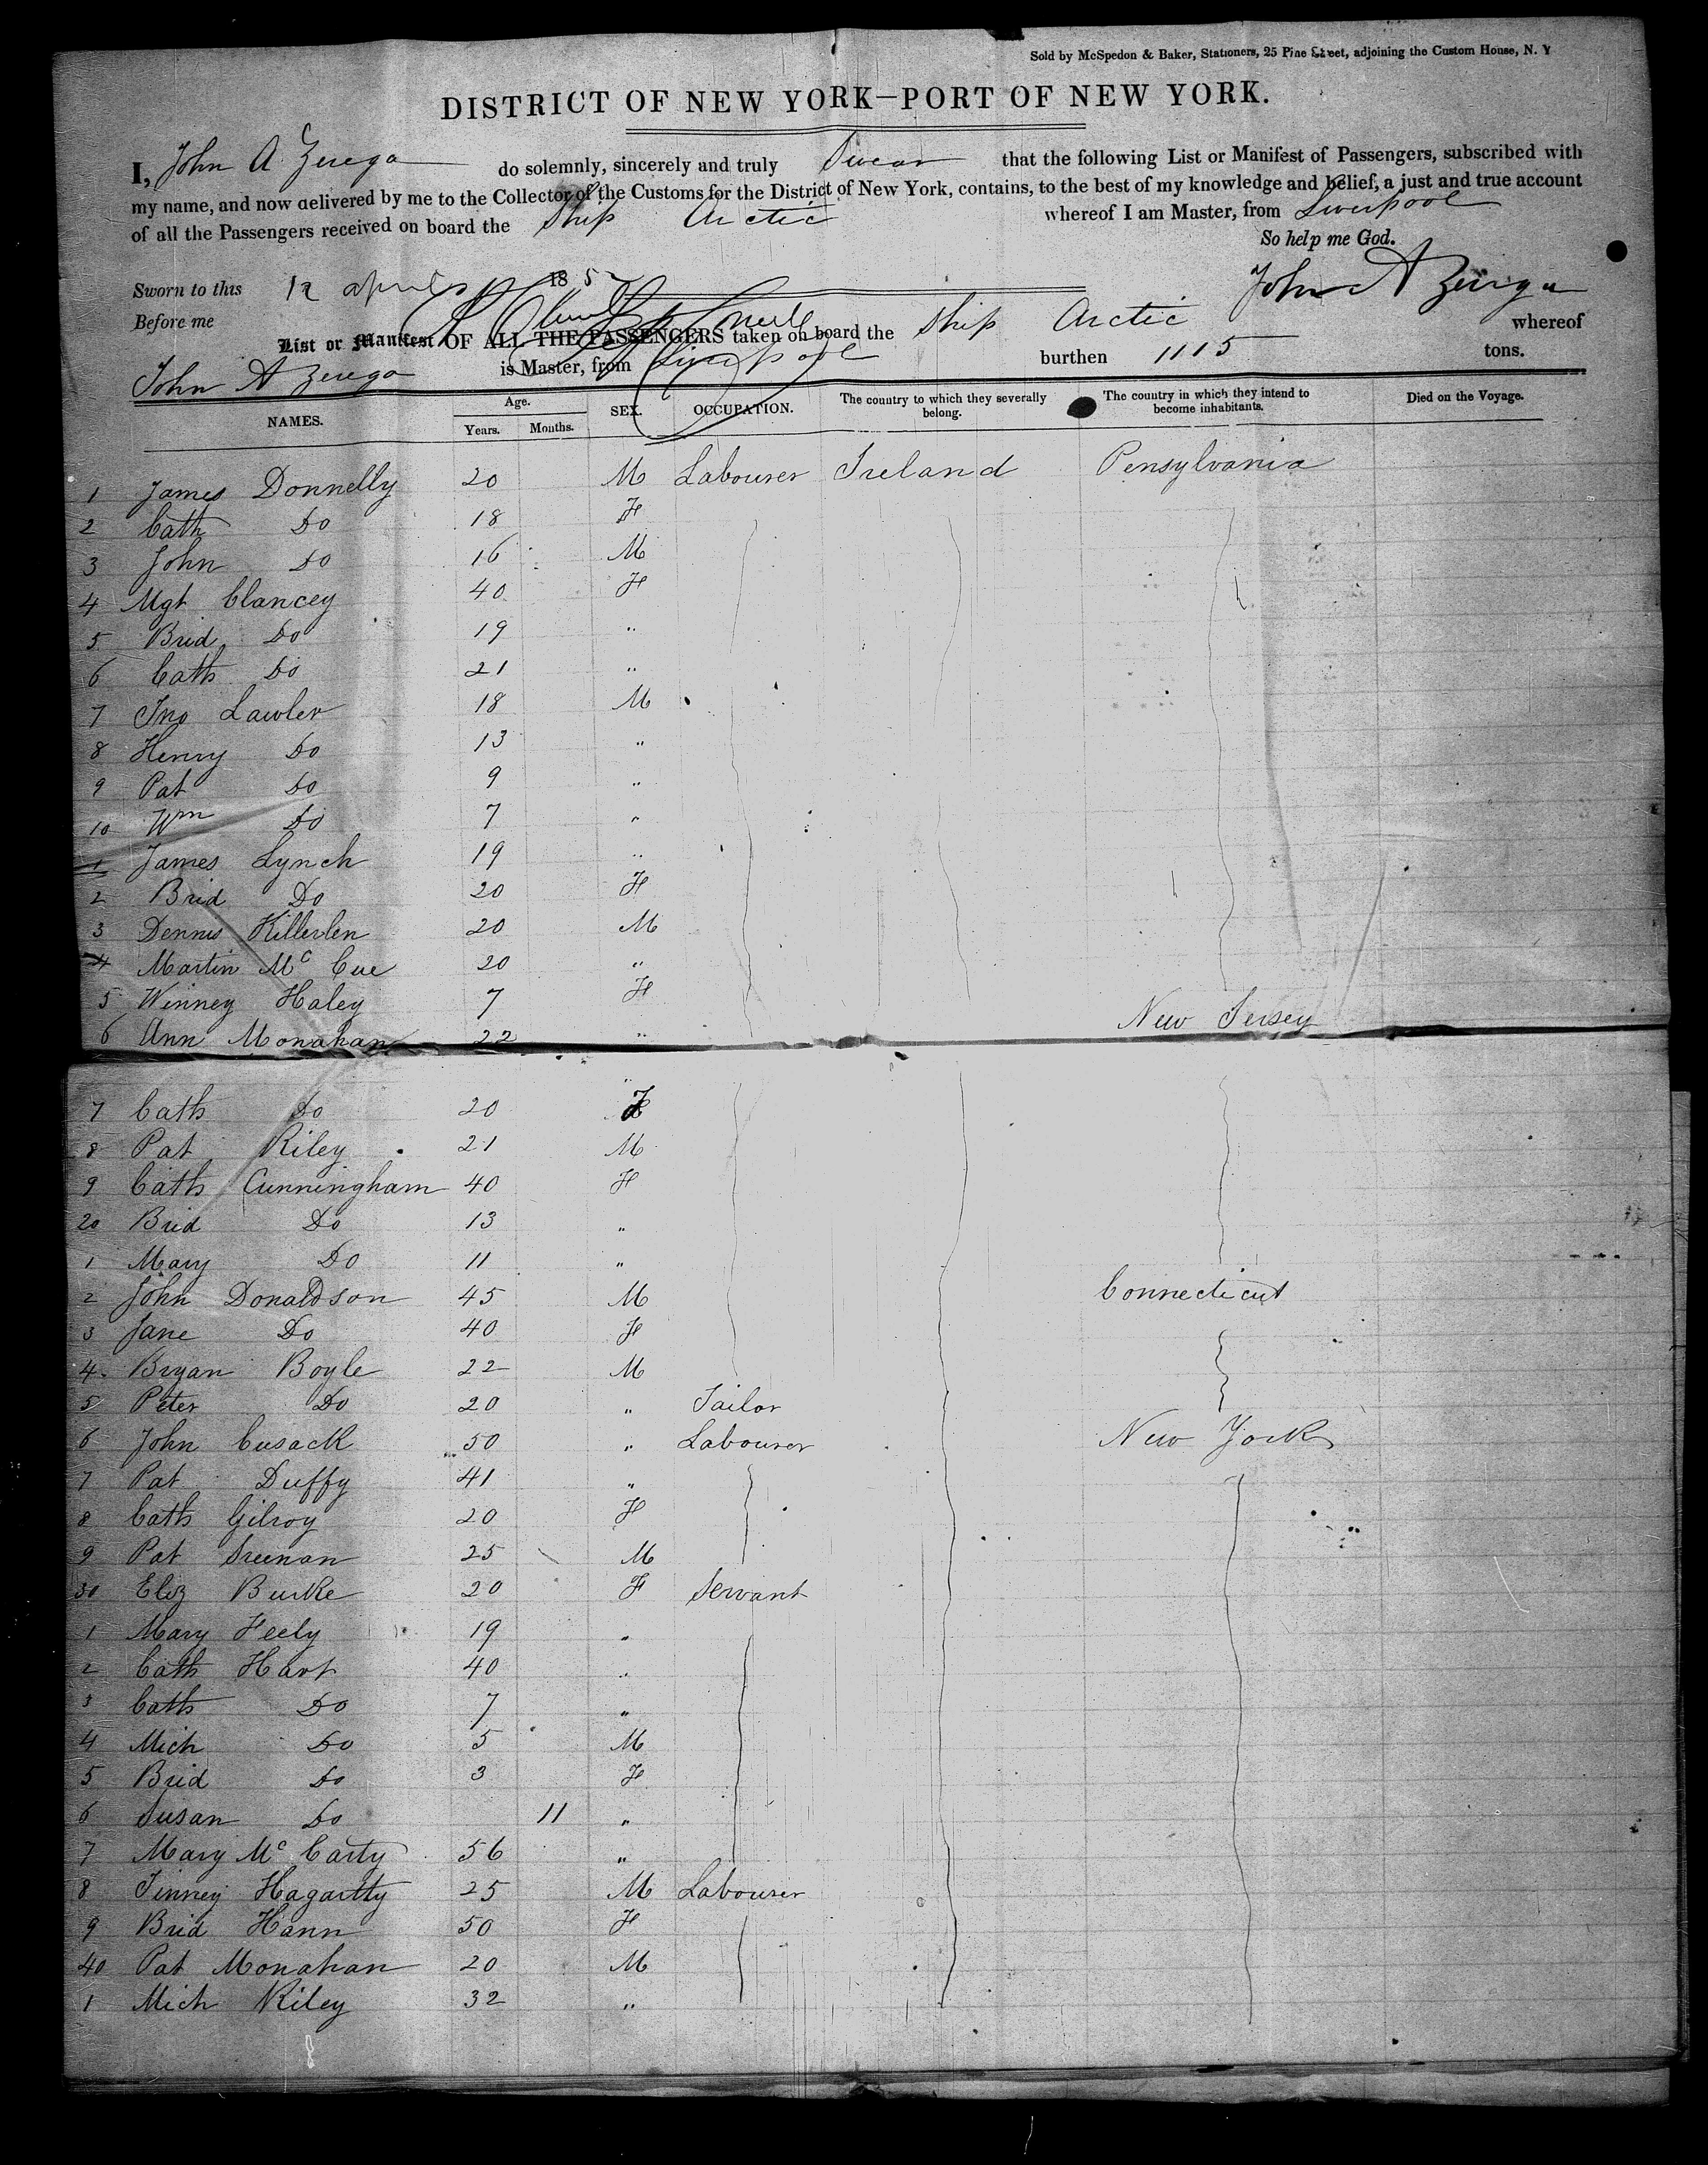 Sold by McSpedon & Baker, Stationers, 25 Pine Street, adjoining the Custom House, N. Y
DISTRICT OF NEW YORK—PORT OF NEW YORK.
I, John A. Zerega do solemnly, sincerely and truly Swear that the following List or Manifest of Passengers, subscribed with
my name, and now delivered by me to the Collector of the Customs for the District of New York, contains, to the best of my knowledge and belief, a just and true account
of all the Passengers received on board the Ship Arctic whereof I am Master, from Liverpool
So help me God.
Sworn to this 12 April 185
John A Zerega
Before me
List or Manifest OF ALL THE PASSENGERS taken on board the Ship Arctic whereof
John A Zerega is Master, from Liverpool burthen 1115 tons.
NAMES. Age. Years. Months. SEX. OCCUPATION. The country to which they severally belong. The country in which they intend to become inhabitants. Died on the Voyage.
1 James Donnelly 20 M Labourer Ireland Pensylvania
2 Cath Do 18 F
3 John Do 16 M
4 Mgt Clancey 40 F
5 Brid Do 19 "
6 Cath Do 21 "
7 Jno Lawler 18 M
8 Henry Do 13 "
9 Pat Do 9 "
10 Wm Do 7 "
1 James Lynch 19 "
2 Brid Do 20 F
3 Dennis Killerlen 20 M
4 Martin Mc Cue 20 "
5 Winney Haley 7 F
6 Ann Monahan 22 " New Jersey
7 Cath Do 20 F
8 Pat Riley 21 M
9 Cath Cunningham 40 F
20 Brid Do 13 "
1 Mary Do 11 "
2 John Donaldson 45 M Connecticut
3 Jane Do 40 F
4 Bryan Boyle 22 M
5 Peter Do 20 " Tailor
6 John Cusack 50 " Labourer New York
7 Pat Duffy 41 "
8 Cath Gilroy 20 F
9 Pat Sreenan 25 M
30 Eliz Burke 20 F Servant
1 Mary Feely 19 "
2 Cath Hart 40 "
3 Cath Do 7 "
4 Mich Do 5 M
5 Brid Do 3 F
6 Susan Do 11 "
7 Mary Mc Carty 56 "
8 Tinney Hagartty 25 M Labourer
9 Brid Hann 50 F
40 Pat Monahan 20 M
1 Mich Riley 32 "